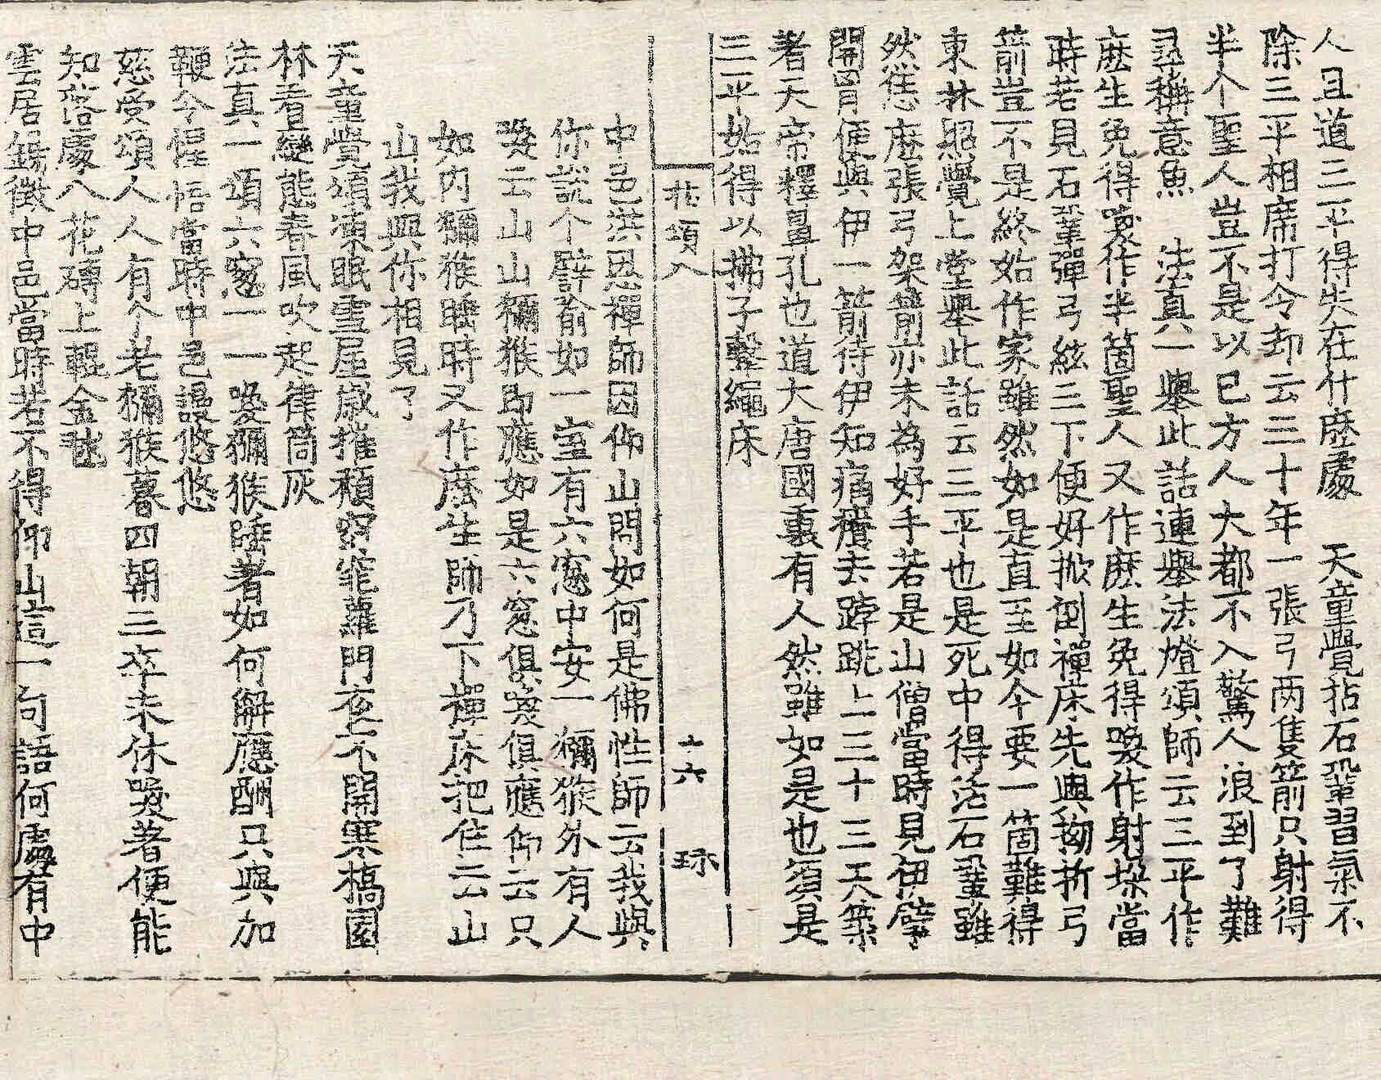 人且道三平得失在什麽處　天童覺拈石鞏習氣不
除三平相席打令却云三十年一張弓兩隻箭只射得
半个聖人豈不是以已方人大都不入驚人浪到了難
尋稱意魚　法真一擧此話連擧法燈頌師云三平作
麽生免得喚作半箇聖人又作麽生免得喚作射垜當
時若見石鞏彈弓絃三下便好掀倒禪床先與拗折弓
箭豈不是終始作家雖然如是直至如今要一箇難得
東林照覺上堂擧此話云三平也是死中得活石鞏雖
然恁麽張弓架箭亦未為好手若是山僧當時見伊擘
開胷便與伊一箭待伊知痛癢去踍跳上三十三天築
著天帝釋鼻孔也道大唐國裏有人然雖如是也須是
三平始得以拂子擊繩床
拈頌八　十六　珎
中邑洪恩禪師因仰山問如何是佛性師云我與
你說个譬喻如一室有六窓中安一獼猴外有人
喚云山山獼猴卽應如是六窓俱喚俱應仰云只
如內獼猴睡時又作麽生師乃下禪床把住云山
山我與你相見了
天童覺頌凍眠雪屋歲摧頹窈窕蘿門夜不開寒槁園
林看變態春風吹起律筒灰
法真一頌六窓一一喚獼猴睡著如何解應酬只與加
鞭令惺悟當時中邑謾悠悠
慈受頌人人有个老獼猴暮四朝三卒未休喚著便能
知落處八花磚上輥金毬
雲居錫徵中邑當時若不得仰山這一句語何處有中